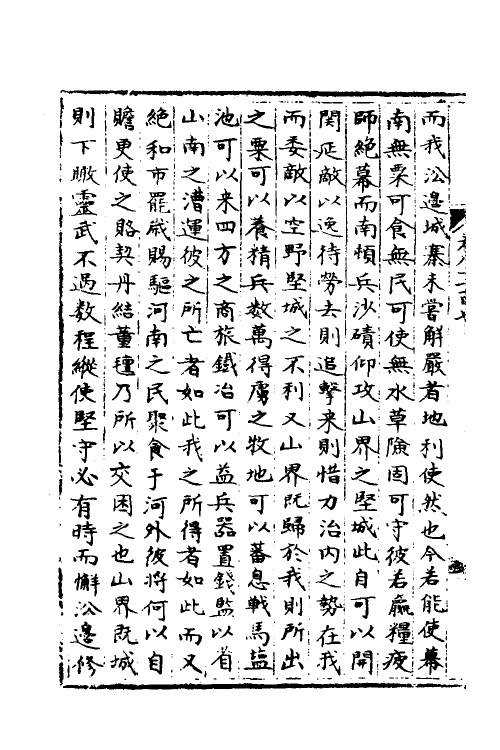 而我沿邊城寨未嘗解嚴者地利使然也今若能使幕
南無粟可食無民可使無水草險固可守彼若羸糧疲
師絶幕而南頓兵沙磧仰攻山界之堅城此自可以開
関延敵以逸待勞去則追擊来則惜力治内之勢在我
而委敵以空野堅城之不利又山界既歸於我則所出
之粟可以養精兵数萬得虜之牧地可以蕃息戰馬塩
池可以来四方之商旅鐡冶可以益兵器置錢監以省
山南之漕運彼之所亡者如此我之所得者如此而又
絶和市罷歲賜驅河南之民聚食于河外彼将何以自
贍更使之賂契丹結董氊乃所以交困之也山界既城
則下瞰靈武不過数程縱使堅守必有時而懈沿邊修